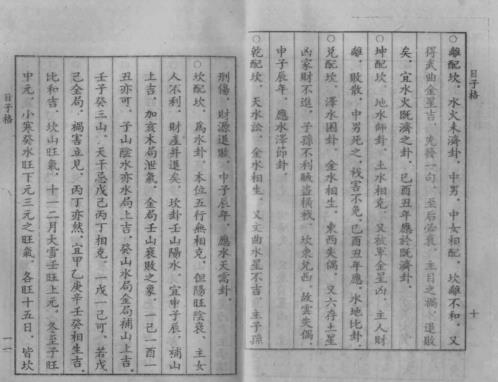 日子格
十
○離配坎、水火未濟卦、中男、中女相配、坎離不和、又
得武曲金星吉、先發一句、至后必衰、主目之禍、退敗
矣、宜水火既濟之卦、己酉丑年應於既濟卦、
○坤配坎、地水師卦、土水相克、又破軍金星凶、主人財
離、敗散、中男死之、殘害不免、己酉丑年應、水地比卦、
○兌配坎、澤水困卦、金水相生、東西失偶、又六存土星
凶家財不進、子孫不利賊盜橫栈、坎東兌西、故雲失偶、
申子辰年、應水澤節卦
○乾配坎、天水訟、金水相生、又文曲水星不吉、主子孫
刑傷、財源退敗、申子辰年、應水天需卦、
○坎配坎、為水卦、本位五行無相克、但陽旺陰衰、主女
人不利、財產并退矣、坎卦壬山陽水、宜申子辰、補山
上吉、加亥未局泄氣、金局壬山衰敗之象、一己一酉一
丑亦可、子山陰水亦水局上吉、癸山水局金局補山上吉、
壬子癸三山、天干忌戊己丙丁相克、一戊一己可、若戊
己全局、禍害立見、丙丁亦然、宜甲乙庚辛壬癸相生吉
比和吉、坎山旺氣、十一二月大雪壬旺上元、冬至子旺
中元、小寒癸水旺下元三元之旺氣、各旺十五日、皆坎
日子格
十一